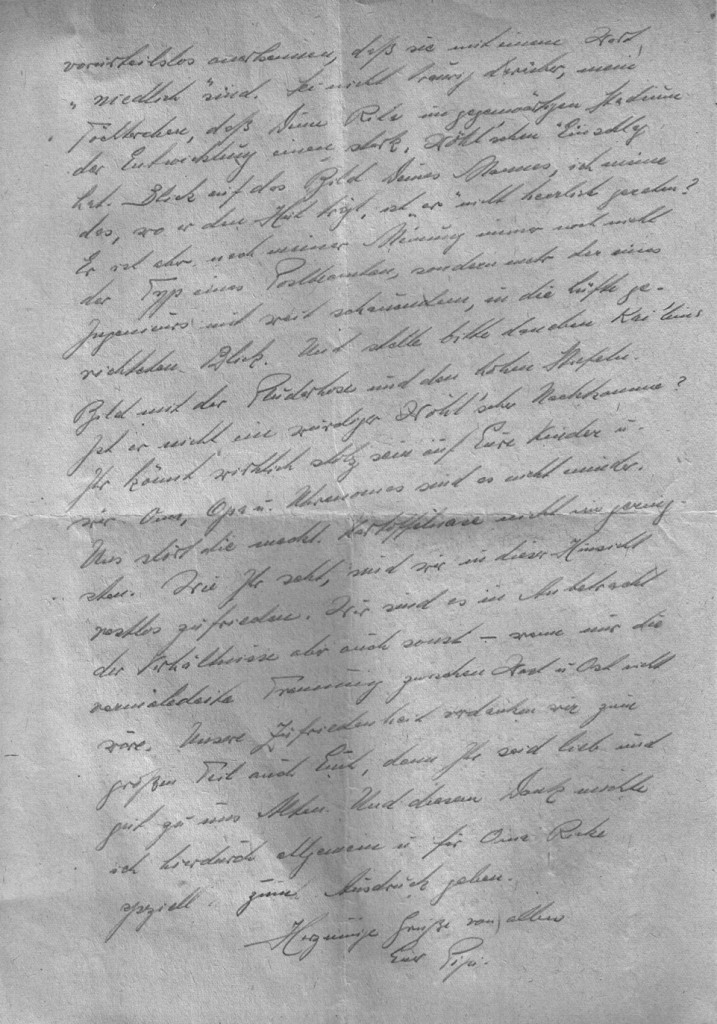 vorurteilslos anerkennen, daß sie mit einem Wort
„niedlich“ sind. Sei nicht traurig darüber, mein
Töchterchen, daß Deine Rike im gegenwärtigen Stadium
der Entwicklung einen stark. 'schen Einschlag
hat. Blick auf das Bild Deines Mannes, ich meine
das, wo er den Hut trägt, ist er nicht herrlich geraten?
Er ist aber nach meiner Meinung immer noch nicht
der Typ eines Postbeamten, sondern mehr der eines
Ingenieurs mit weit schauendem, in die Lüfte ge-
richteten Blick. Und stelle bitte daneben Kai
Bild mit der Pluderhose und den hohen Stiefeln.
Ist er nicht ein würdiger 'scher Nachkomme?
Ihr könnt wirklich stolz sein auf Eure Kinder u.
wir Oma, Opa u. sind es nicht minder.
Uns stört die Kartoffelnase nicht im gering-
sten. Wie Ihr seht, sind wir in dieser Hinsicht
restlos zufrieden. Wir sind es in Anbetracht
der Verhältnisse aber auch sonst – wenn nur die
vermaledeite Trennung zwischen West u. Ost nicht
wäre. Unsere Zufriedenheit verdanken wir zum
großen Teil auch Euch, denn Ihr seid lieb und
gut zu uns Alten. Und diesem Dank möchte
ich hierdurch allgemein u. für Oma
speziell zum Ausdruck geben.
Herzinnige Grüße von allen
Euer